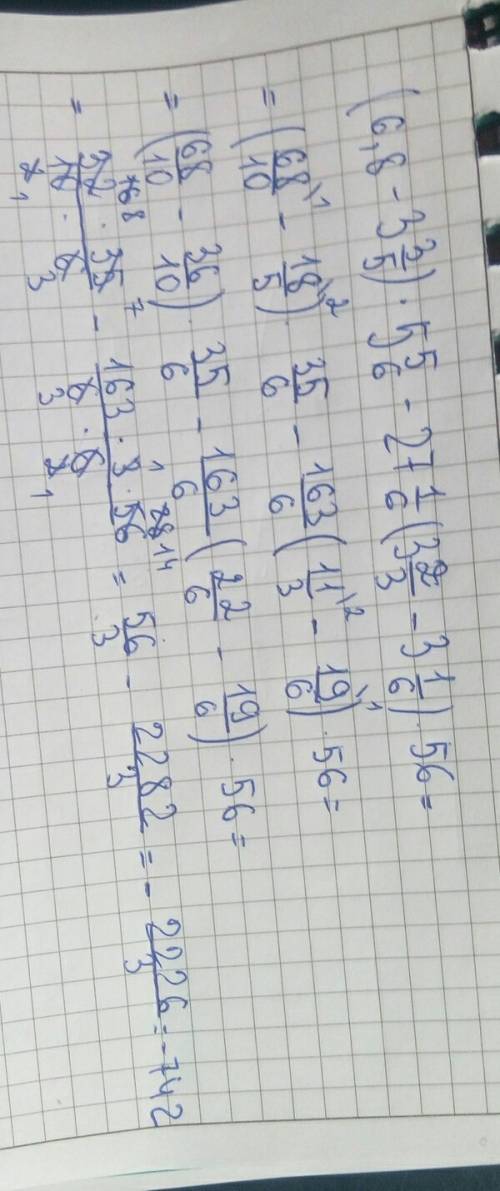 (6,8 - 3 3/5) · 5 5/6 - 27 1/6 (3 2/3 - 3 1/6) · 56 =
= (68/10 \1 - 18/5 \2) · 35/6 - 163/6 (11/3 \2 - 19/6 \1) · 56 =
= (68/10 - 36/10) · 35/6 - 163/6 (22/6 - 19/6) · 56 =
= 32 16 8 · 35 7 / 10 2 1 · 6 3 - 163 · 3 1 · 56 28 14 / 6 3 · 6 2 1 = 56/3 - 2282/3 = - 2226/3 = -742